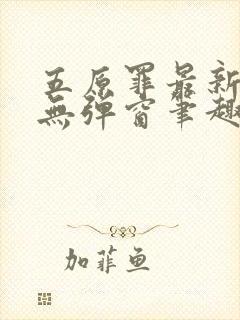 五原罪最新
無彈窗笔趣
加菲鱼